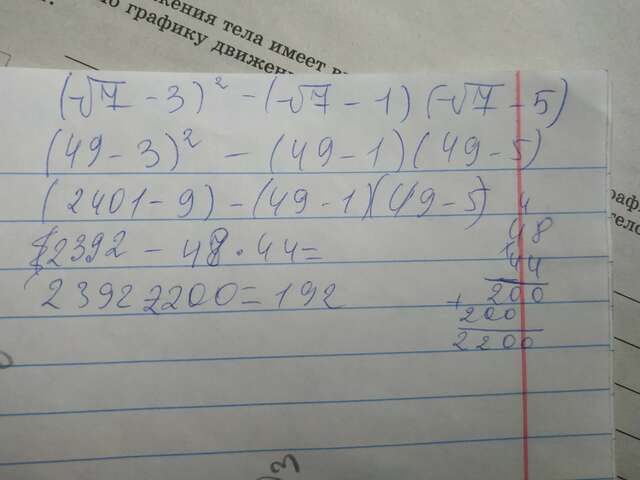 жения тела имеет в
о графику движени
(-√7 - 3)² - (-√7 - 1)(-√7 - 5)
(49 - 3)² - (49 - 1)(49 - 5)
(2401 - 9) - (49 - 1)(49 - 5)
2392 - 48 · 44 =
2392 - 2200 = 192
4
48
44
200
+ 200
2200
раф
тело